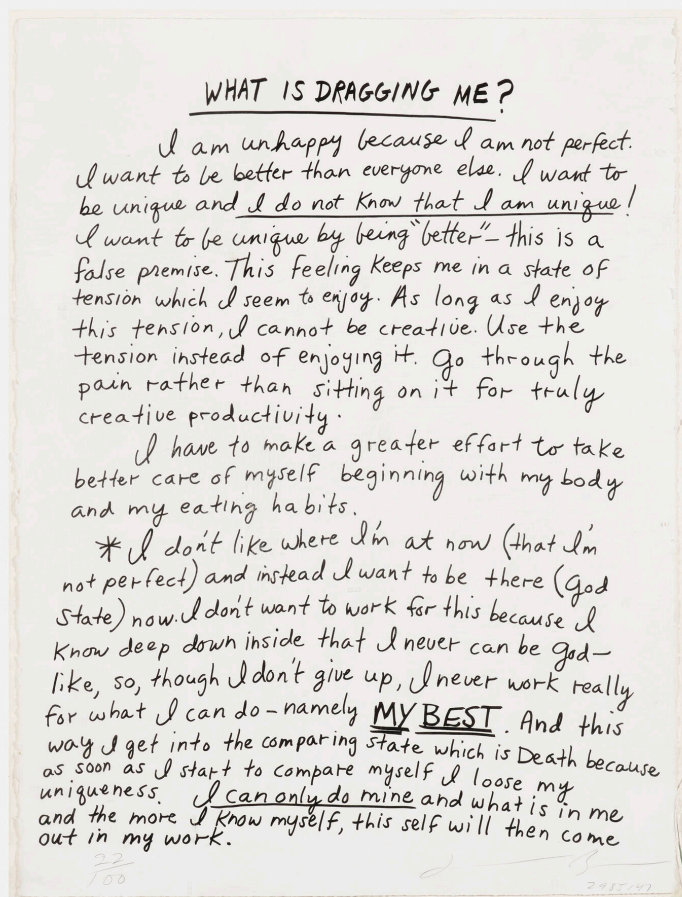 WHAT IS DRAGGING ME?
I am unhappy because I am not perfect.
I want to be better than everyone else. I want to
be unique and I do not know that I am unique!
I want to be unique by being "better" – this is a
false premise. This feeling keeps me in a state of
tension which I seem to enjoy. As long as I enjoy
this tension, I cannot be creative. Use the
tension instead of enjoying it. Go through the
pain rather than sitting on it for truly
creative productivity.
I have to make a greater effort to take
better care of myself beginning with my body
and my eating habits.
* I don't like where I'm at now (that I'm
not perfect) and instead I want to be there (God
State) now. I don't want to work for this because I
know deep down inside that I never can be god–
like, so, though I don't give up, I never work really
for what I can do – namely MY BEST. And this
way I get into the comparing state which is Death because
as soon as I start to compare myself I loose my
uniqueness. I can only do mine and what is in me
and the more I know myself, this self will then come
out in my work.
100